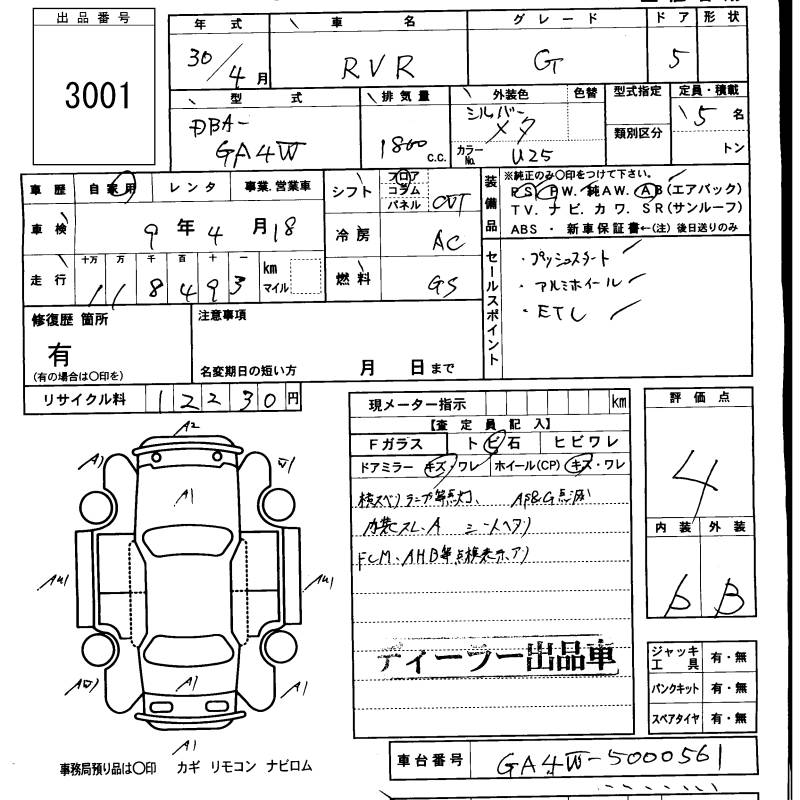 出品番号
3001
年式 車名 グレード ドア 形状
30/4月 RVR G 5
型式 排気量 外装色 色替 型式指定 定員・積載
DBA-
GA4W 1800 c.c. シルバーメタ カラーNo. U25 類別区分 5名
トン
車歴 自家用 レンタ 事業.営業車
車検 9年4月18
走行 十万 万 千 百 十 一
118493 km マイル
シフト フロア コラム パネル CVT
冷房 AC
燃料 GS
装備品
※純正のみ○印をつけて下さい。
PS. PW. 純AW. AB(エアバック)
TV. ナビ. カワ. SR(サンルーフ)
ABS ・ 新車保証書←(注) 後日送りのみ
セールスポイント
・プッシュスタート
・アルミホイール
・ETC
修復歴 箇所
有
(有の場合は○印を)
注意事項
名変期日の短い方 月 日まで
リサイクル料 12230円
現メーター指示 km
【査定員記入】
Fガラス トビ石 ヒビワレ
ドアミラー キズ・ワレ ホイール(CP) キズ・ワレ
内装スレ、A シートヘタリ
ディーラー出品車
評価点
4
内装 外装
b B
ジャッキ工具 有・無
パンクキット 有・無
スペアタイヤ 有・無
A2
A1
A1
A1
A1
A1
事務局預り品は○印 カギ リモコン ナビロム
車台番号 GA4W-5000561